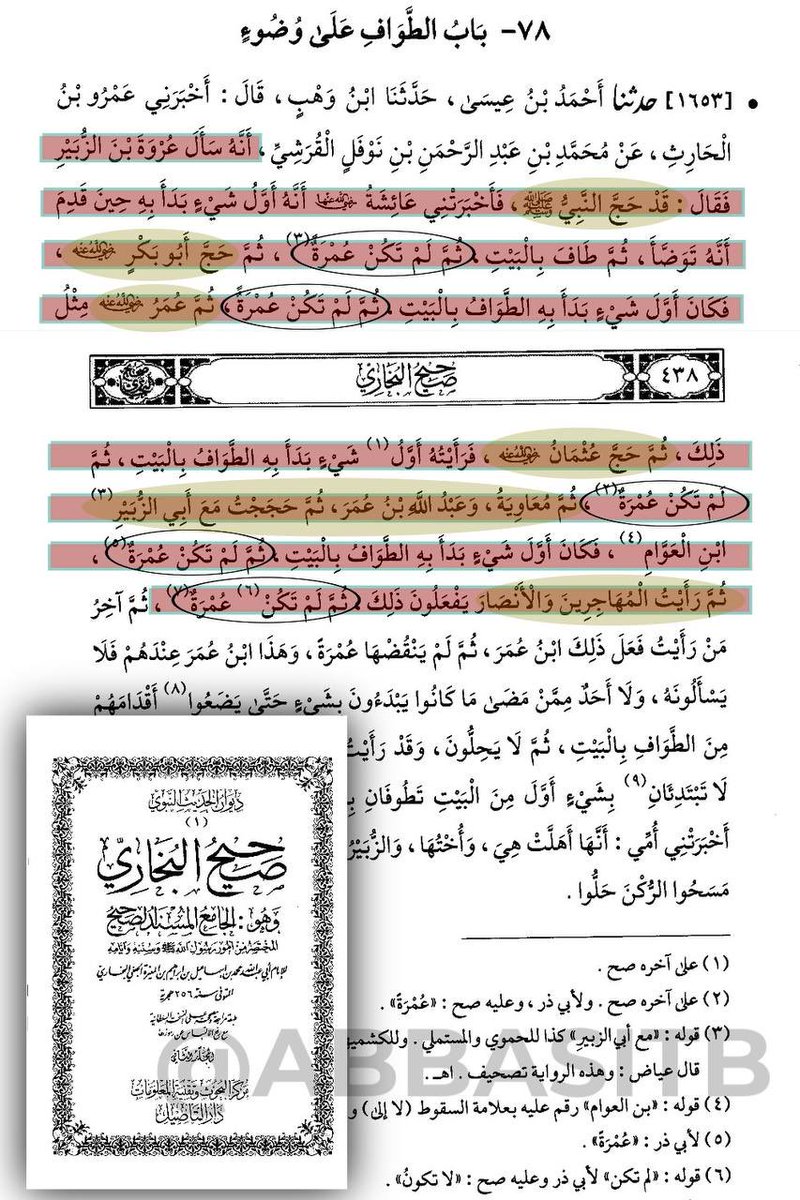 ٧٨- بَابُ الطَّوَافِ عَلَىٰ وُضُوءٍ
• [١٦٥٣] حدثنا أَحْمَدُ بْنُ عِيسَىٰ، حَدَّثَنَا ابْنُ وَهْبٍ، قَالَ: أَخْبَرَنِي عَمْرُو بْنُ
الْحَارِثِ، عَنْ مُحَمَّدِ بْنِ عَبْدِ الرَّحْمَنِ بْنِ نَوْفَلٍ الْقُرَشِيِّ، أَنَّهُ سَأَلَ عُرْوَةَ بْنَ الزُّبَيْرِ
فَقَالَ: قَدْ حَجَّ النَّبِيُّ ﷺ، فَأَخْبَرَتْنِي عَائِشَةُ رضي الله عنها أَنَّهُ أَوَّلُ شَيْءٍ بَدَأَ بِهِ حِينَ قَدِمَ
أَنَّهُ تَوَضَّأَ، ثُمَّ طَافَ بِالْبَيْتِ، ثُمَّ لَمْ تَكُنْ عُمْرَةٌ(٣)، ثُمَّ حَجَّ أَبُو بَكْرٍ رضي الله عنه،
فَكَانَ أَوَّلَ شَيْءٍ بَدَأَ بِهِ الطَّوَافُ بِالْبَيْتِ، ثُمَّ لَمْ تَكُنْ عُمْرَةً، ثُمَّ عُمَرُ رضي الله عنه مِثْلُ
٤٣٨ صَحِيحُ البُخَارِيِّ
ذَلِكَ، ثُمَّ حَجَّ عُثْمَانُ رضي الله عنه، فَرَأَيْتُهُ أَوَّلُ(١) شَيْءٍ بَدَأَ بِهِ الطَّوَافُ بِالْبَيْتِ، ثُمَّ
لَمْ تَكُنْ عُمْرَةٌ(٢)، ثُمَّ مُعَاوِيَةُ، وَعَبْدُ اللَّهِ بْنُ عُمَرَ، ثُمَّ حَجَجْتُ مَعَ أَبِي الزُّبَيْرِ(٣)
ابْنِ الْعَوَّامِ(٤)، فَكَانَ أَوَّلَ شَيْءٍ بَدَأَ بِهِ الطَّوَافُ بِالْبَيْتِ، ثُمَّ لَمْ تَكُنْ عُمْرَةٌ(٥)،
ثُمَّ رَأَيْتُ الْمُهَاجِرِينَ وَالْأَنْصَارَ يَفْعَلُونَ ذَلِكَ، ثُمَّ لَمْ تَكُنْ(٦) عُمْرَةٌ(٧)، ثُمَّ آخِرُ
مَنْ رَأَيْتُ فَعَلَ ذَلِكَ ابْنُ عُمَرَ، ثُمَّ لَمْ يَنْقُضْهَا عُمْرَةً، وَهَذَا ابْنُ عُمَرَ عِنْدَهُمْ فَلَا
يَسْأَلُونَهُ، وَلَا أَحَدٌ مِمَّنْ مَضَىٰ مَا كَانُوا يَبْدَءُونَ بِشَيْءٍ حَتَّىٰ يَضَعُوا(٨) أَقْدَامَهُمْ
مِنَ الطَّوَافِ بِالْبَيْتِ، ثُمَّ لَا يَحِلُّونَ، وَقَدْ رَأَيْتُ
لَا تَبْتَدِئَانِ(٩) بِشَيْءٍ أَوَّلَ مِنَ الْبَيْتِ تَطُوفَانِ
أَخْبَرَتْنِي أُمِّي: أَنَّهَا أَهَلَّتْ هِيَ، وَأُخْتُهَا، وَالزُّبَيْرُ
مَسَحُوا الرُّكْنَ حَلُّوا.
(١) علىٰ آخره صح.
(٢) علىٰ آخره صح. ولأبي ذر، وعليه صح: «عُمْرَةً».
(٣) قوله: «مع أبي الزبير» كذا للحموي والمستملي. وللكشميه
قال عياض: وهذه الرواية تصحيف. اهـ.
(٤) قوله: «بن العوام» رقم عليه بعلامة السقوط (لا إلىٰ) و
(٥) لأبي ذر: «عُمْرَةً».
(٦) قوله: «لم تكن» لأبي ذر وعليه صح: «لا تكونُ».
ديوان الحديث النبوي
(١)
صحيح البخاري
وهو: الجامع المسند الصحيح
المختصر من أمور رسول الله ﷺ وسننه وأيامه
للإمام أبي عبد الله محمد بن إسماعيل بن إبراهيم بن المغيرة الجعفي البخاري
المتوفى سنة ٢٥٦ هجرية
المجلد الثاني
مركز البحوث وتقنية المعلومات
دار التأصيل
@ABBASITB